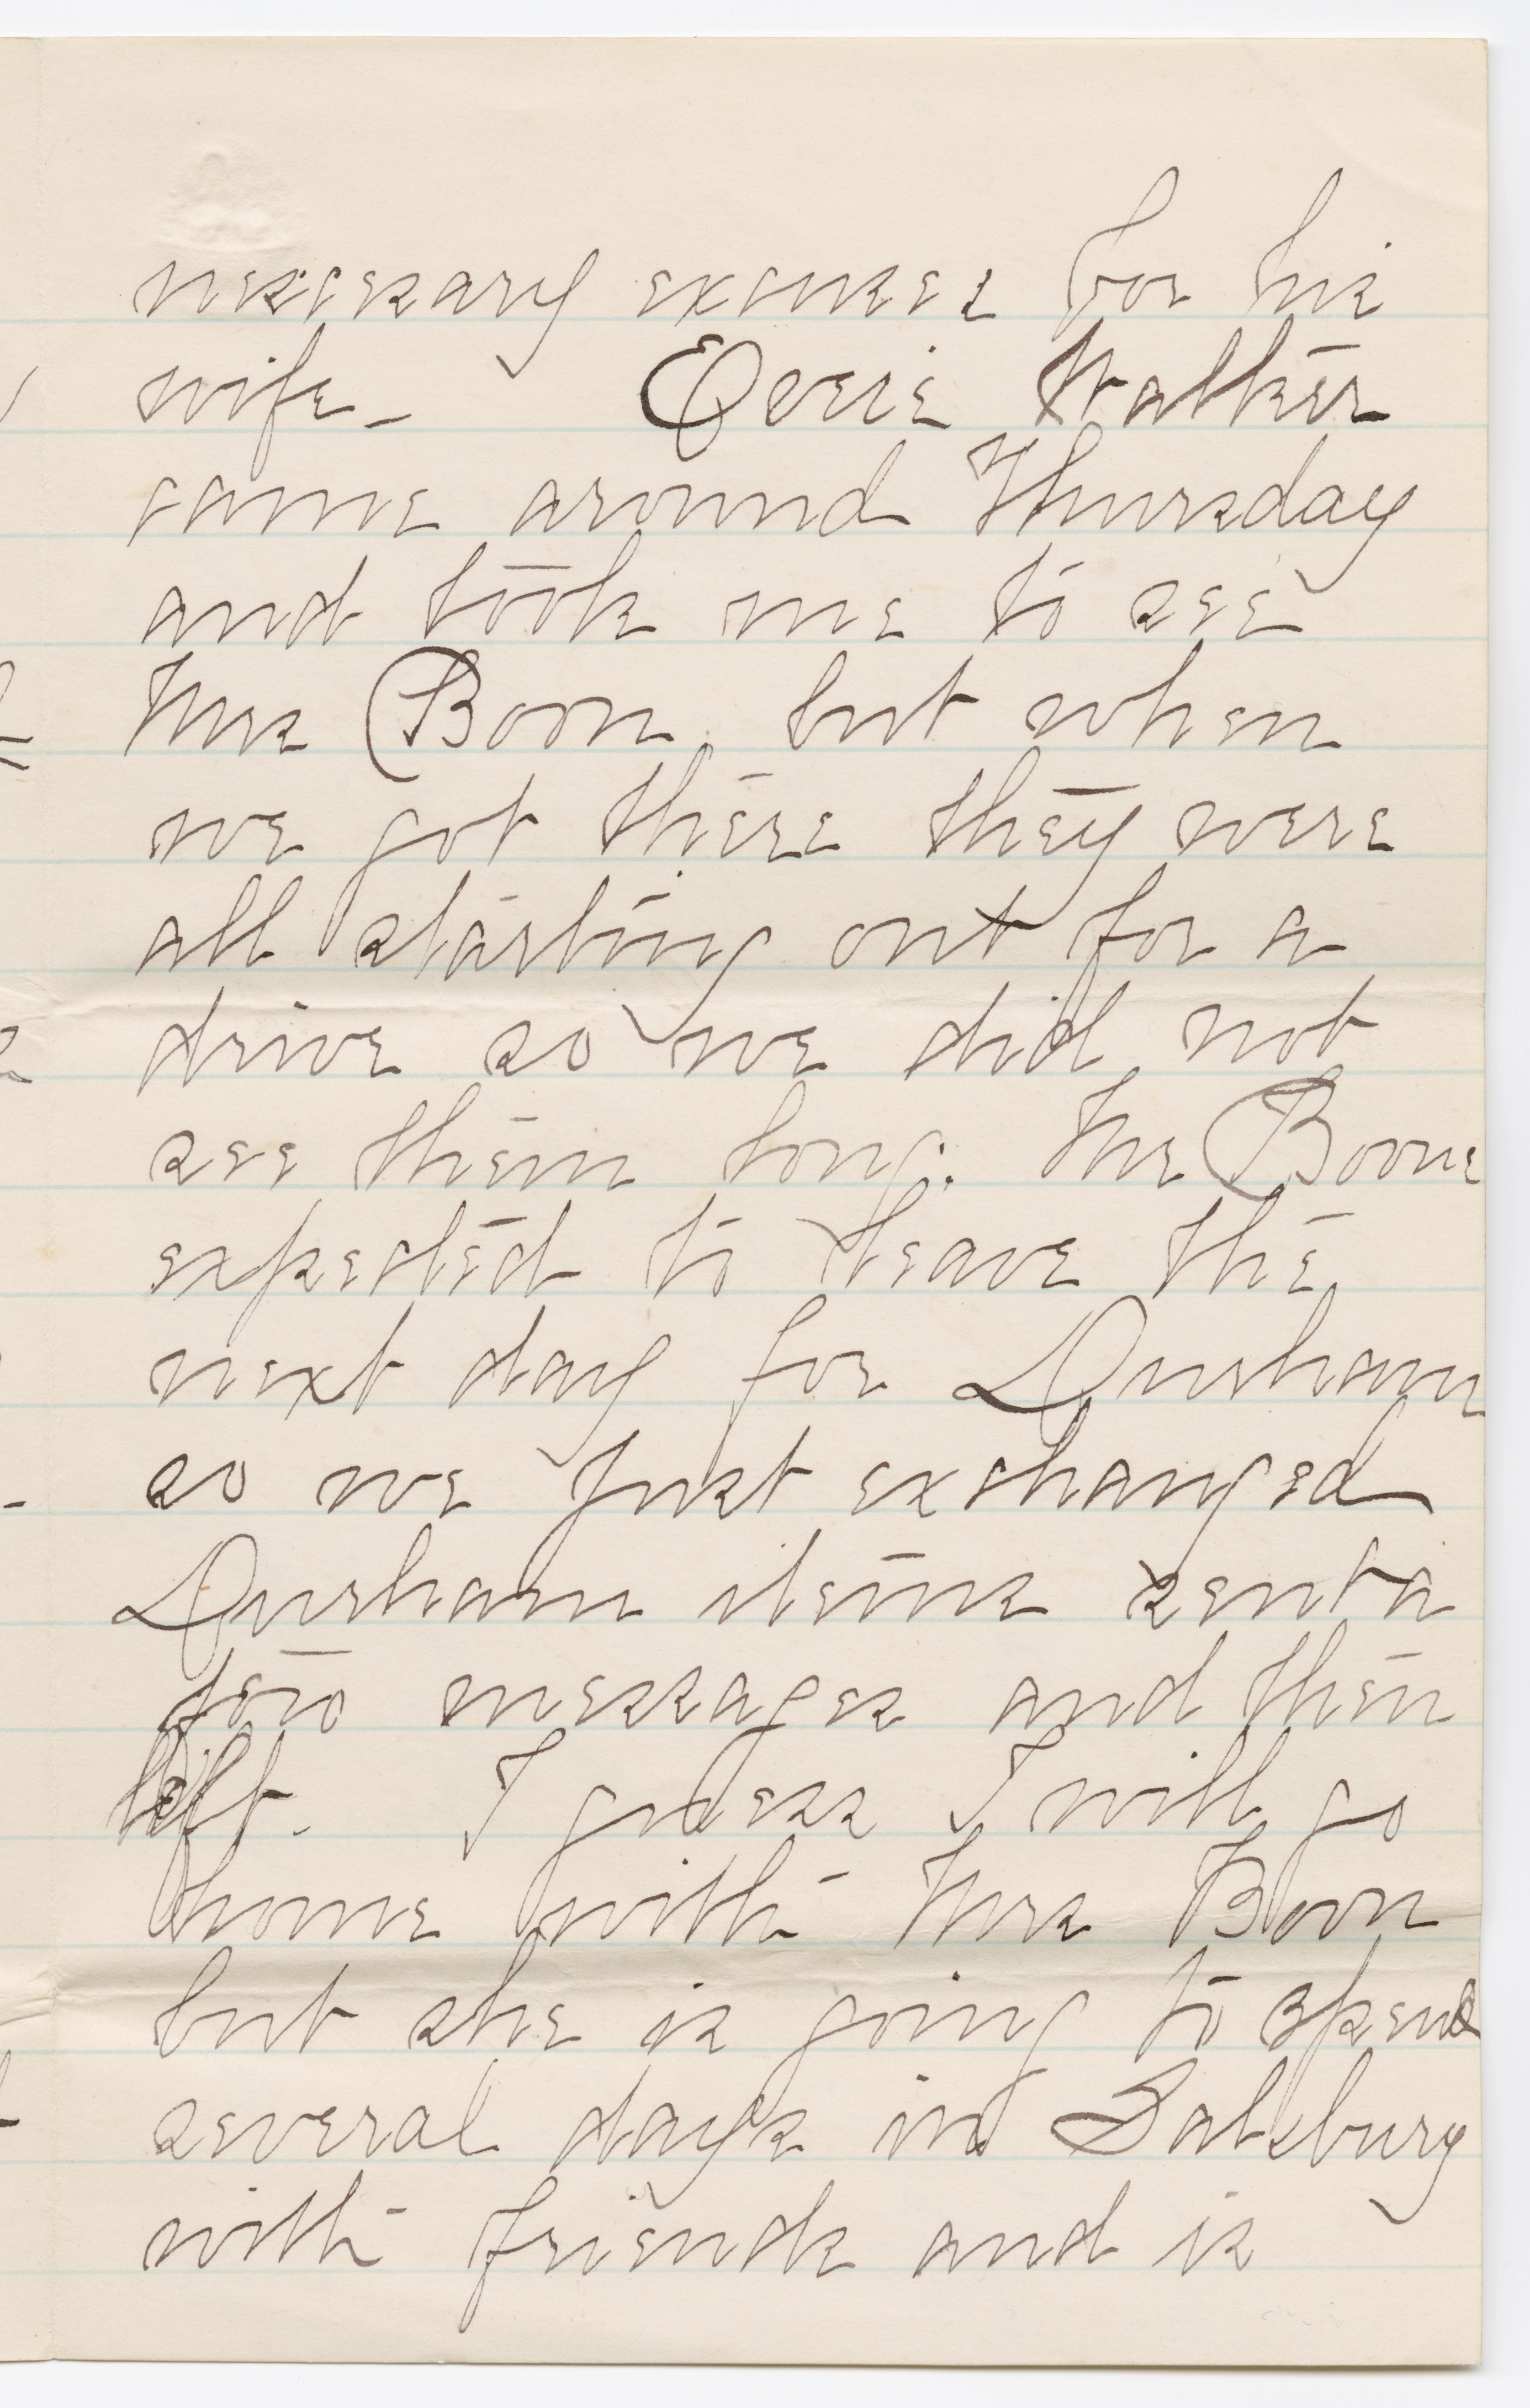 necessary excuses for his
wife_ Evrie Walker
came around Thursday
and took me to see
Mrs Boon, but when
we got there they were
all starting out for a
drive so we did not
see them long. Mr Boone
expected to leave the
next day for Durham
so we just exchanged
Durham items sent a
few messages and then
left. I guess I will go
home with Mrs Boon
but she is going to spend
several days in Salsbury
with friends and is